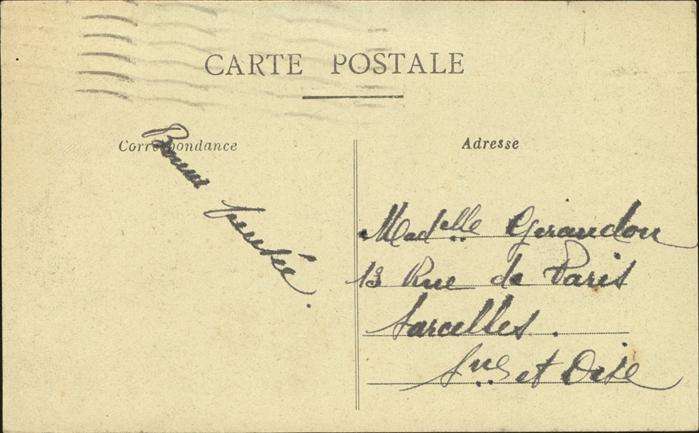 CARTE POSTALE
Correspondance
Adresse
Bonne
pensée.
Madelle Girandon
13 Rue de Paris
Sarcelles.
Sne et Oise